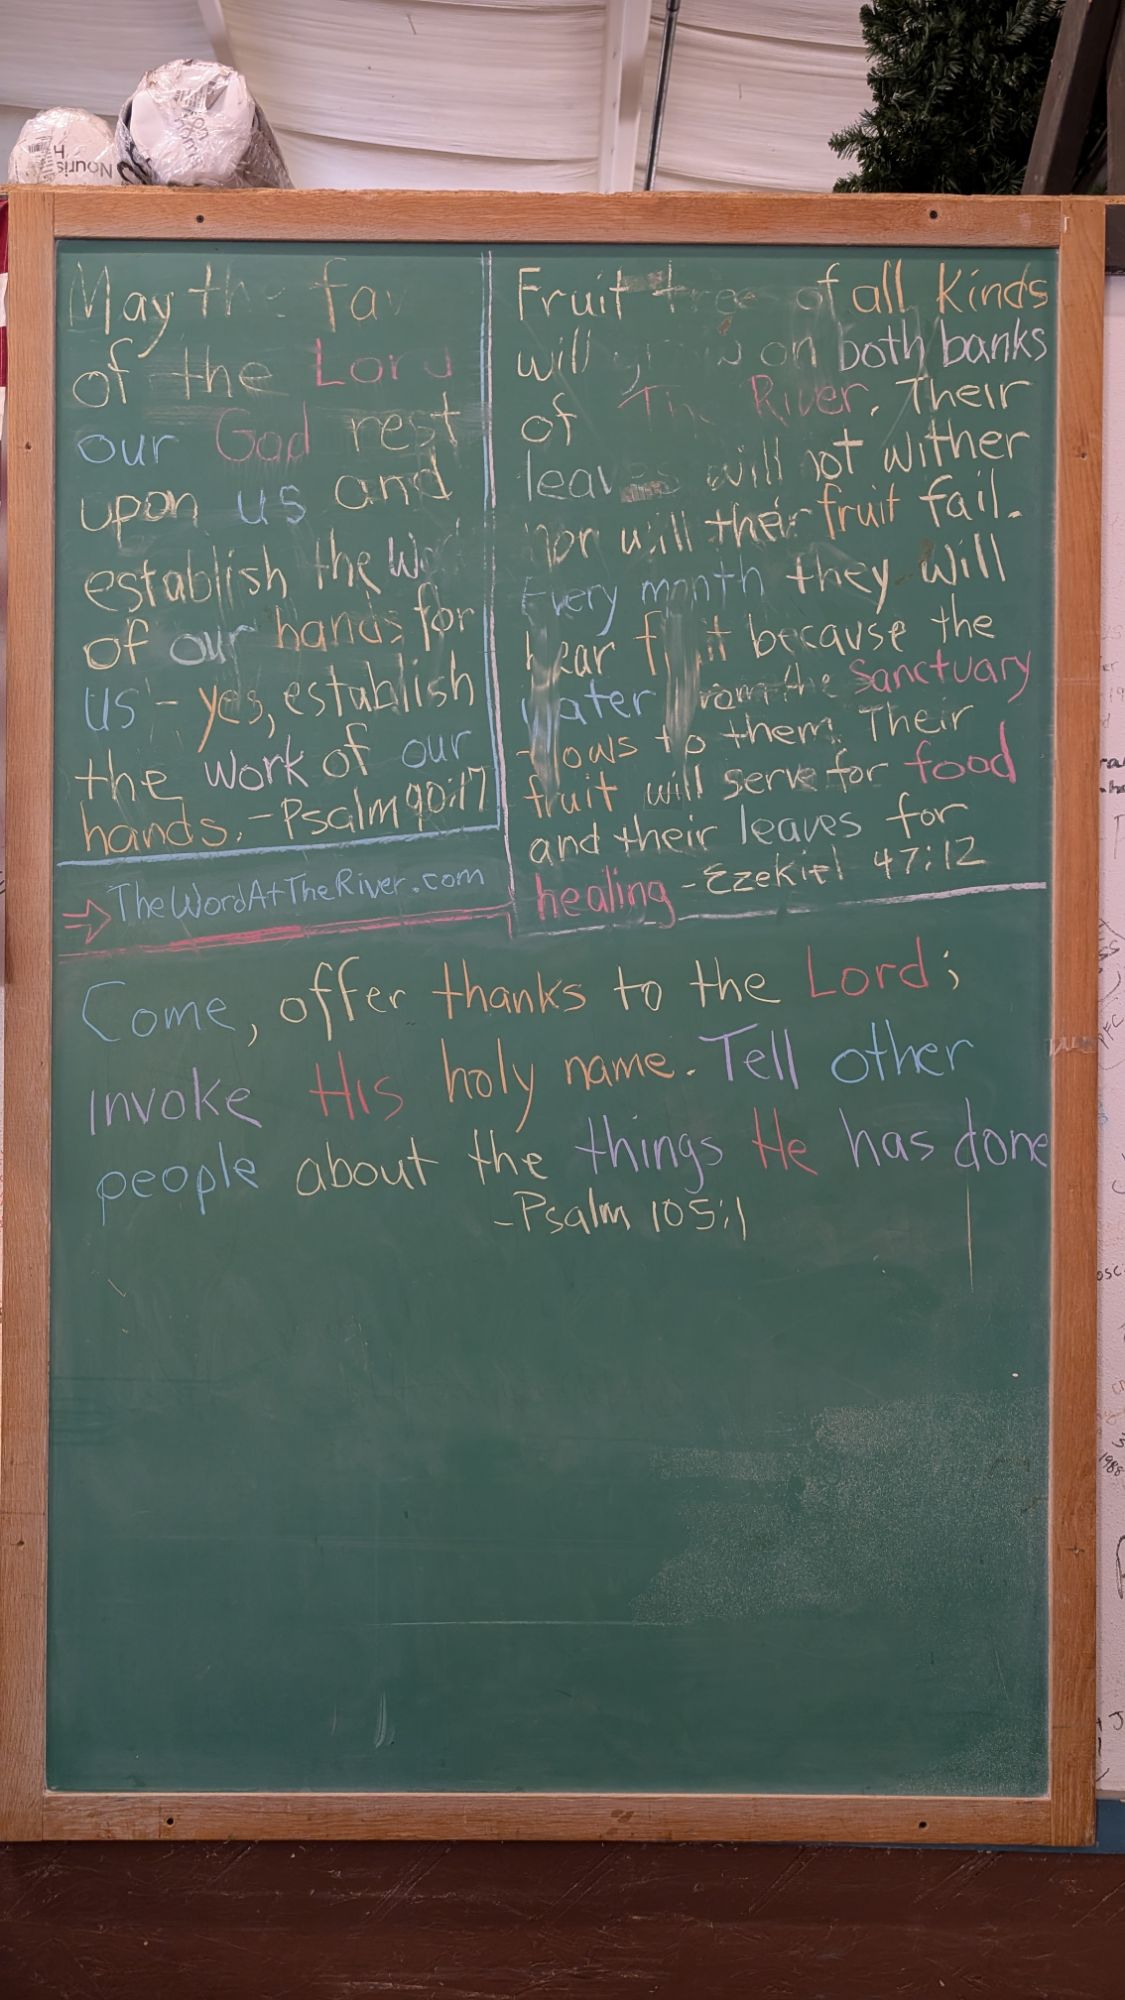 May the fav
of the Lord
our God rest
upon us and
establish the Wo
of our hands for
us - yes, establish
the work of our
hands. - Psalm 90:17
TheWordAtTheRiver.com
Fruit tree of all Kinds
will on both banks
of The River. Their
leaves will not wither
nor will their fruit fail.
Every month they will
bear fruit because the
water from the Sanctuary
flows to them. Their
fruit will serve for food
and their leaves for
healing - Ezekiel 47:12
Come, offer thanks to the Lord;
invoke His holy name. Tell other
people about the things He has done
- Psalm 105:1